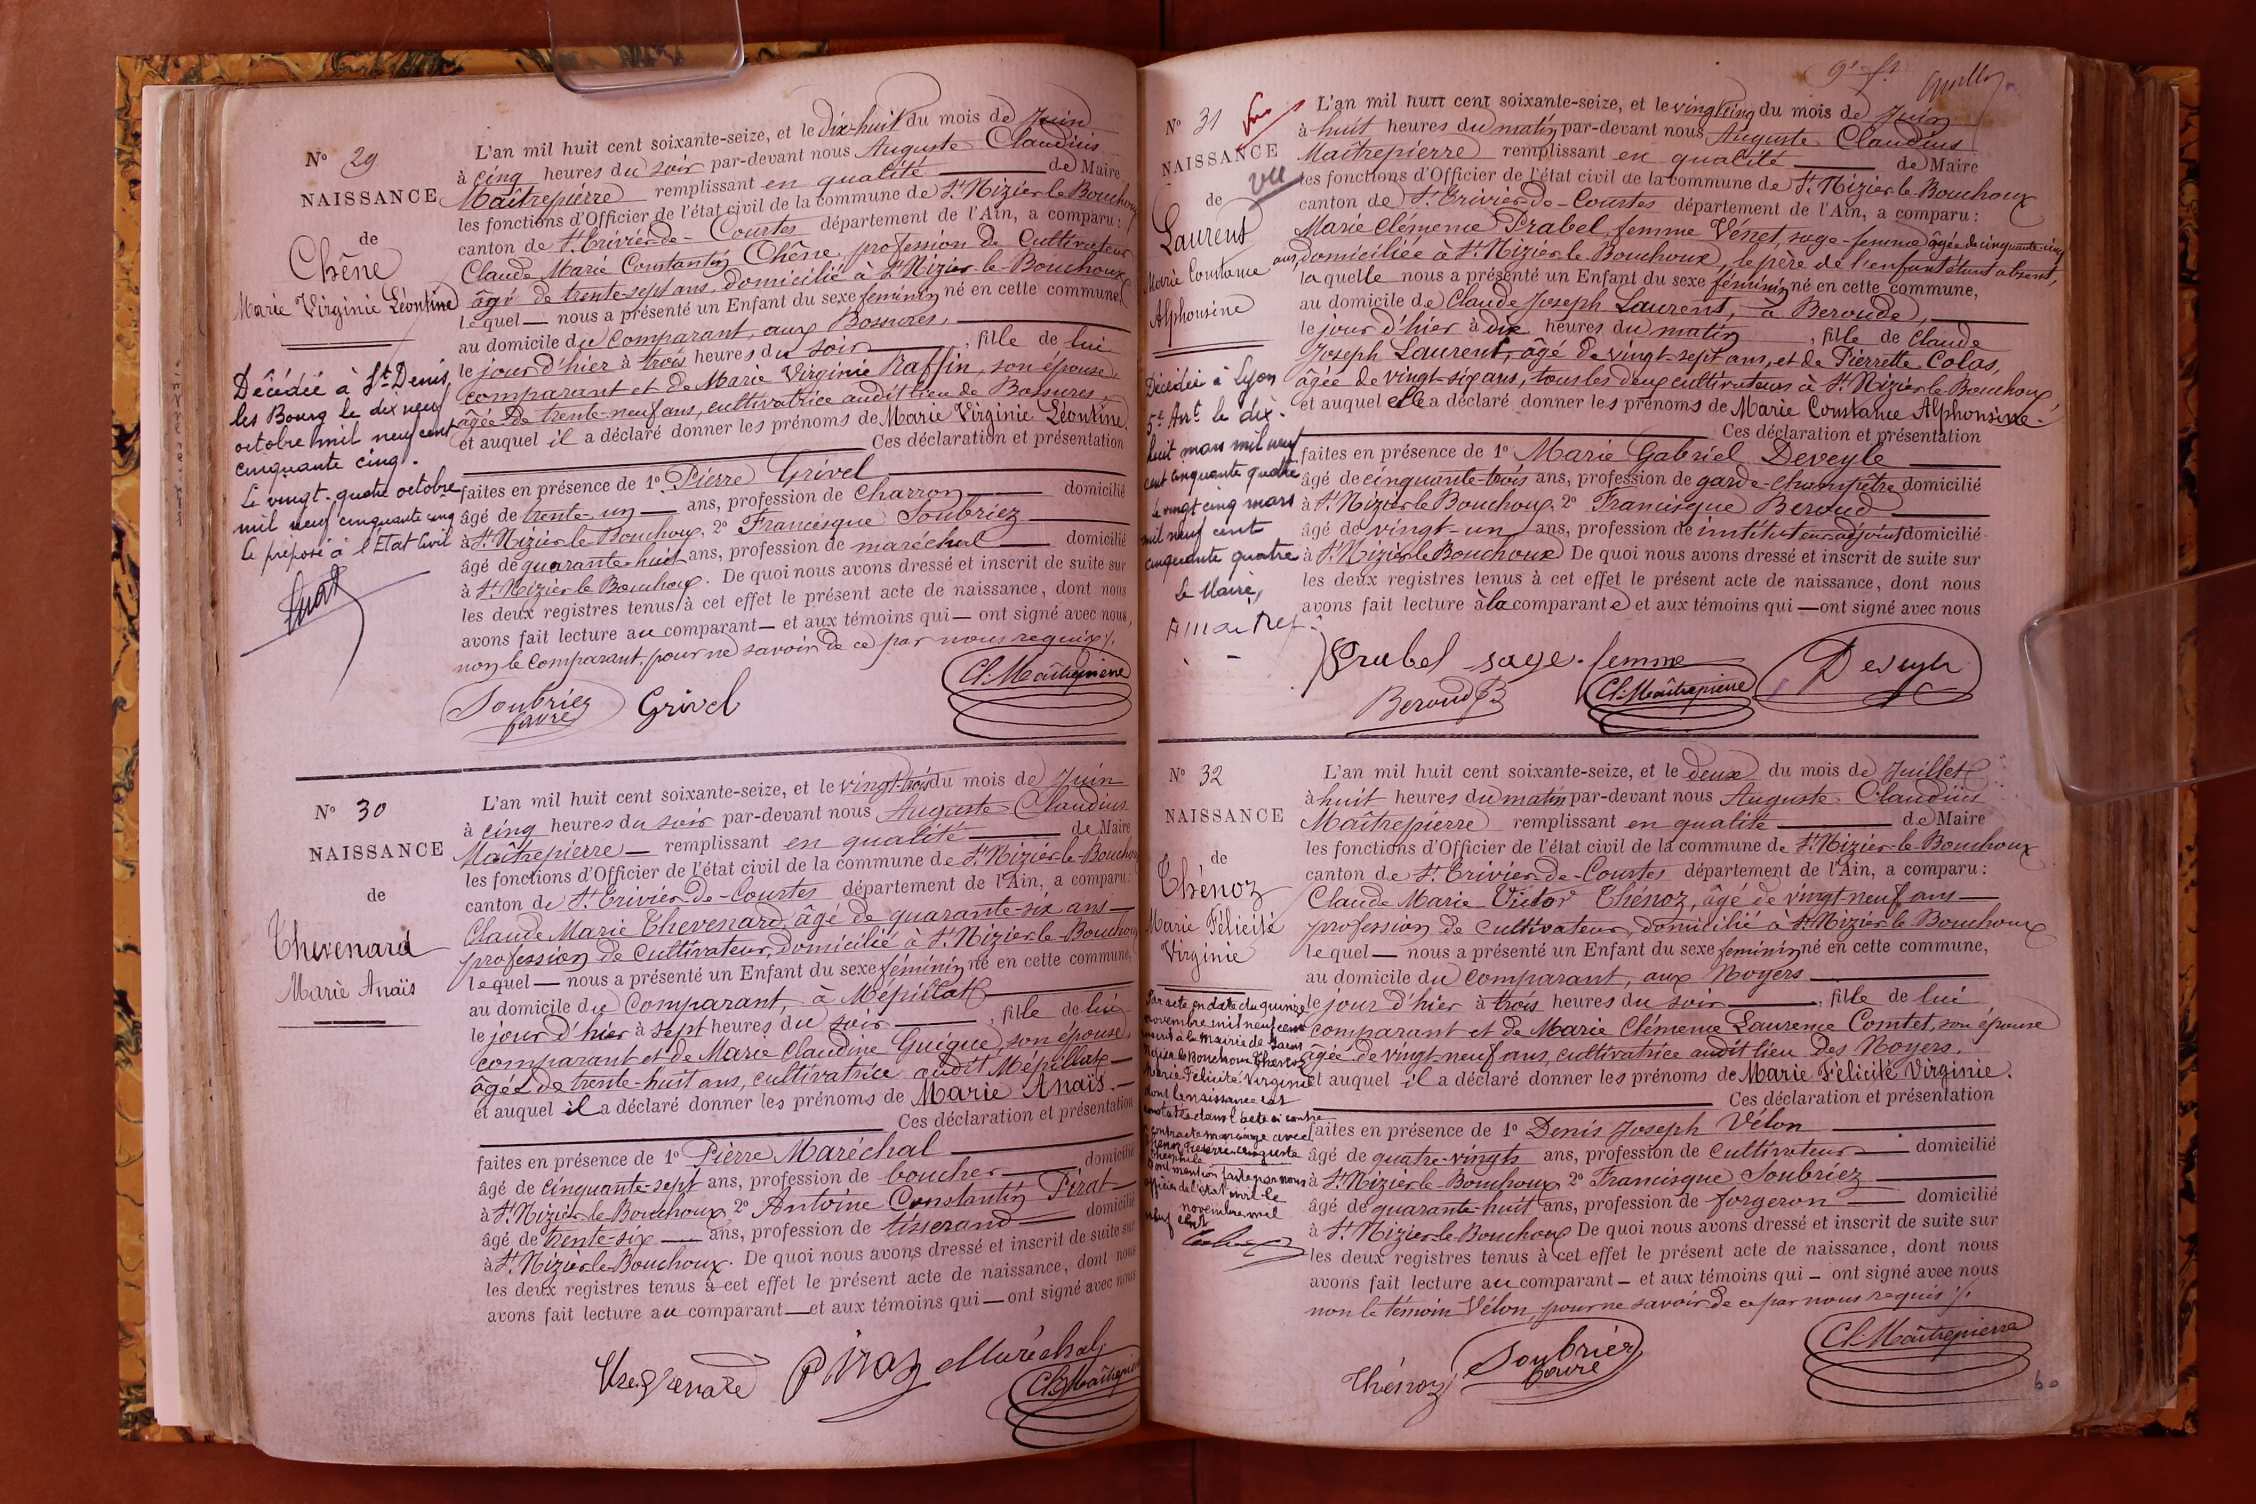 N° 29
NAISSANCE
de
Chêne
Marie Virginie Léontine
Décédée à St Denis
les Bourg le dix neuf
octobre mil neuf cent
cinquante cinq.
Le vingt-quatre octobre
mil neuf cinquante cinq
le préposé à l'Etat Civil
L'an mil huit cent soixante-seize, et le dix-huit du mois de Juin
à cinq heures du soir par-devant nous Auguste Claudius
Maîtrepierre remplissant en qualité de Maire
les fonctions d'Officier de l'état civil de la commune de St Nizier-le-Bouchoux
canton de St Trivier-de-Courtes département de l'Ain, a comparu:
Claude Marie Constantin Chêne, profession de Cultivateur
âgé de trente-sept ans, domicilié à St Nizier-le-Bouchoux
lequel — nous a présenté un Enfant du sexe féminin né en cette commune,
au domicile du Comparant, aux Bossures,
le jour d'hier à trois heures du soir, fille de lui
comparant et de Marie Virginie Raffin, son épouse,
âgée de trente-neuf ans, cultivatrice audit lieu de Bossures,
et auquel il a déclaré donner les prénoms de Marie Virginie Léontine.
Ces déclaration et présentation
faites en présence de 1° Pierre Grivel
âgé de trente-un — ans, profession de Charron domicilié
à St Nizier le Bouchoux, 2° Francisque Soubriez
âgé de quarante-huit ans, profession de maréchal domicilié
à St Nizier le Bouchoux. De quoi nous avons dressé et inscrit de suite sur
les deux registres tenus à cet effet le présent acte de naissance, dont nous
avons fait lecture au comparant — et aux témoins qui — ont signé avec nous,
non le comparant, pour ne savoir de ce par nous requis /.
Soubriez
favre
Grivel
Cl. Maîtrepierre
N° 30
NAISSANCE
de
Thevenard
Marie Anaïs
L'an mil huit cent soixante-seize, et le vingt-trois du mois de Juin
à cinq heures du soir par-devant nous Auguste Claudius
Maîtrepierre — remplissant en qualité de Maire
les fonctions d'Officier de l'état civil de la commune de St Nizier-le-Bouchoux
canton de St Trivier-de-Courtes département de l'Ain, a comparu:
Claude Marie Thevenard, âgé de quarante-six ans —
profession de Cultivateur, domicilié à St Nizier-le-Bouchoux
lequel — nous a présenté un Enfant du sexe féminin né en cette commune,
au domicile du Comparant, à Mépillat
le jour d'hier à sept heures du soir, fille de lui
comparant et de Marie Claudine Guigue, son épouse,
âgée de trente-huit ans, cultivatrice audit Mépillat —
et auquel il a déclaré donner les prénoms de Marie Anaïs. —
Ces déclaration et présentation
faites en présence de 1° Pierre Maréchal
âgé de cinquante-sept ans, profession de boucher domicilié
à St Nizier-le-Bouchoux, 2° Antoine Constantin Pirat
âgé de trente-six — ans, profession de tisserand domicilié
à St Nizier-le-Bouchoux. De quoi nous avons dressé et inscrit de suite sur
les deux registres tenus à cet effet le présent acte de naissance, dont nous
avons fait lecture au comparant — et aux témoins qui — ont signé avec nous
Thevenard
Pirat
Maréchal
Cl. Maîtrepierre
N° 31
NAISSANCE
vu
de
Laurent
Marie Constance
Alphonsine
Décédée à Lyon
5e Art le dix-
huit mars mil neuf
cent cinquante quatre
Le vingt cinq mars
mil neuf cent
cinquante quatre
Le Maire,
L'an mil huit cent soixante-seize, et le vingt cinq du mois de Juin
à huit heures du matin par-devant nous Auguste Claudius
Maîtrepierre remplissant en qualité de Maire
les fonctions d'Officier de l'état civil de la commune de St Nizier-le-Bouchoux
canton de St Trivier-de-Courtes département de l'Ain, a comparu:
Marie Clémence Prabel, femme Venet, sage-femme âgée de cinquante-cinq
ans, domiciliée à St Nizier le Bouchoux, le père de l'enfant étant absent,
laquelle nous a présenté un Enfant du sexe féminin né en cette commune,
au domicile de Claude Joseph Laurent, à Beroude,
le jour d'hier à dix heures du matin, fille de Claude
Joseph Laurent, âgé de vingt-sept ans, et de Pierrette Colas,
âgée de vingt-six ans, tous les deux cultivateurs à St Nizier le Bouchoux
et auquel elle a déclaré donner les prénoms de Marie Constance Alphonsine.
Ces déclaration et présentation
faites en présence de 1° Marie Gabriel Deveyle
âgé de cinquante-trois ans, profession de garde-champêtre domicilié
à St Nizier le Bouchoux, 2° Francisque Beroud
âgé de vingt-un ans, profession de instituteur-adjoint domicilié
à St Nizier le Bouchoux De quoi nous avons dressé et inscrit de suite sur
les deux registres tenus à cet effet le présent acte de naissance, dont nous
avons fait lecture à la comparante et aux témoins qui — ont signé avec nous
Prabel sage-femme
Beroud
Cl. Maîtrepierre
Deveyle
N° 32
NAISSANCE
de
Thénoz
Marie Félicité
Virginie
Par acte en date du quinze
novembre mil neuf cent
inscrit à la mairie de Saint
Nizier le Bouchoux Thenoz
Marie Félicité Virginie
dont la naissance est
constatée dans l'acte ci contre
a contracté mariage avec
Dont mention faite par nous
officier de l'état civil le
novembre mil
neuf cent
L'an mil huit cent soixante-seize, et le deux du mois de Juillet
à huit heures du matin par-devant nous Auguste Claudius
Maîtrepierre remplissant en qualité de Maire
les fonctions d'Officier de l'état civil de la commune de St Nizier-le-Bouchoux
canton de St Trivier-de-Courtes département de l'Ain, a comparu:
Claude Marie Victor Thénoz, âgé de vingt-neuf ans —
profession de Cultivateur, domicilié à St Nizier le Bouchoux
lequel — nous a présenté un Enfant du sexe féminin né en cette commune,
au domicile du comparant, aux Noyers
le jour d'hier à trois heures du soir, fille de lui
comparant et de Marie Clémence Laurence Comtet, son épouse
âgée de vingt-neuf ans, cultivatrice audit lieu des Noyers.
et auquel il a déclaré donner les prénoms de Marie Félicité Virginie.
Ces déclaration et présentation
faites en présence de 1° Denis Joseph Vélon
âgé de quatre-vingts ans, profession de Cultivateur domicilié
à St Nizier-le-Bouchoux 2° Francisque Soubriez
âgé de quarante-huit ans, profession de forgeron domicilié
à St Nizier-le-Bouchoux De quoi nous avons dressé et inscrit de suite sur
les deux registres tenus à cet effet le présent acte de naissance, dont nous
avons fait lecture au comparant — et aux témoins qui — ont signé avec nous
non le témoin Vélon, pour ne savoir de ce par nous requis /.
Thénoz
Soubriez
favre
Cl. Maîtrepierre
60